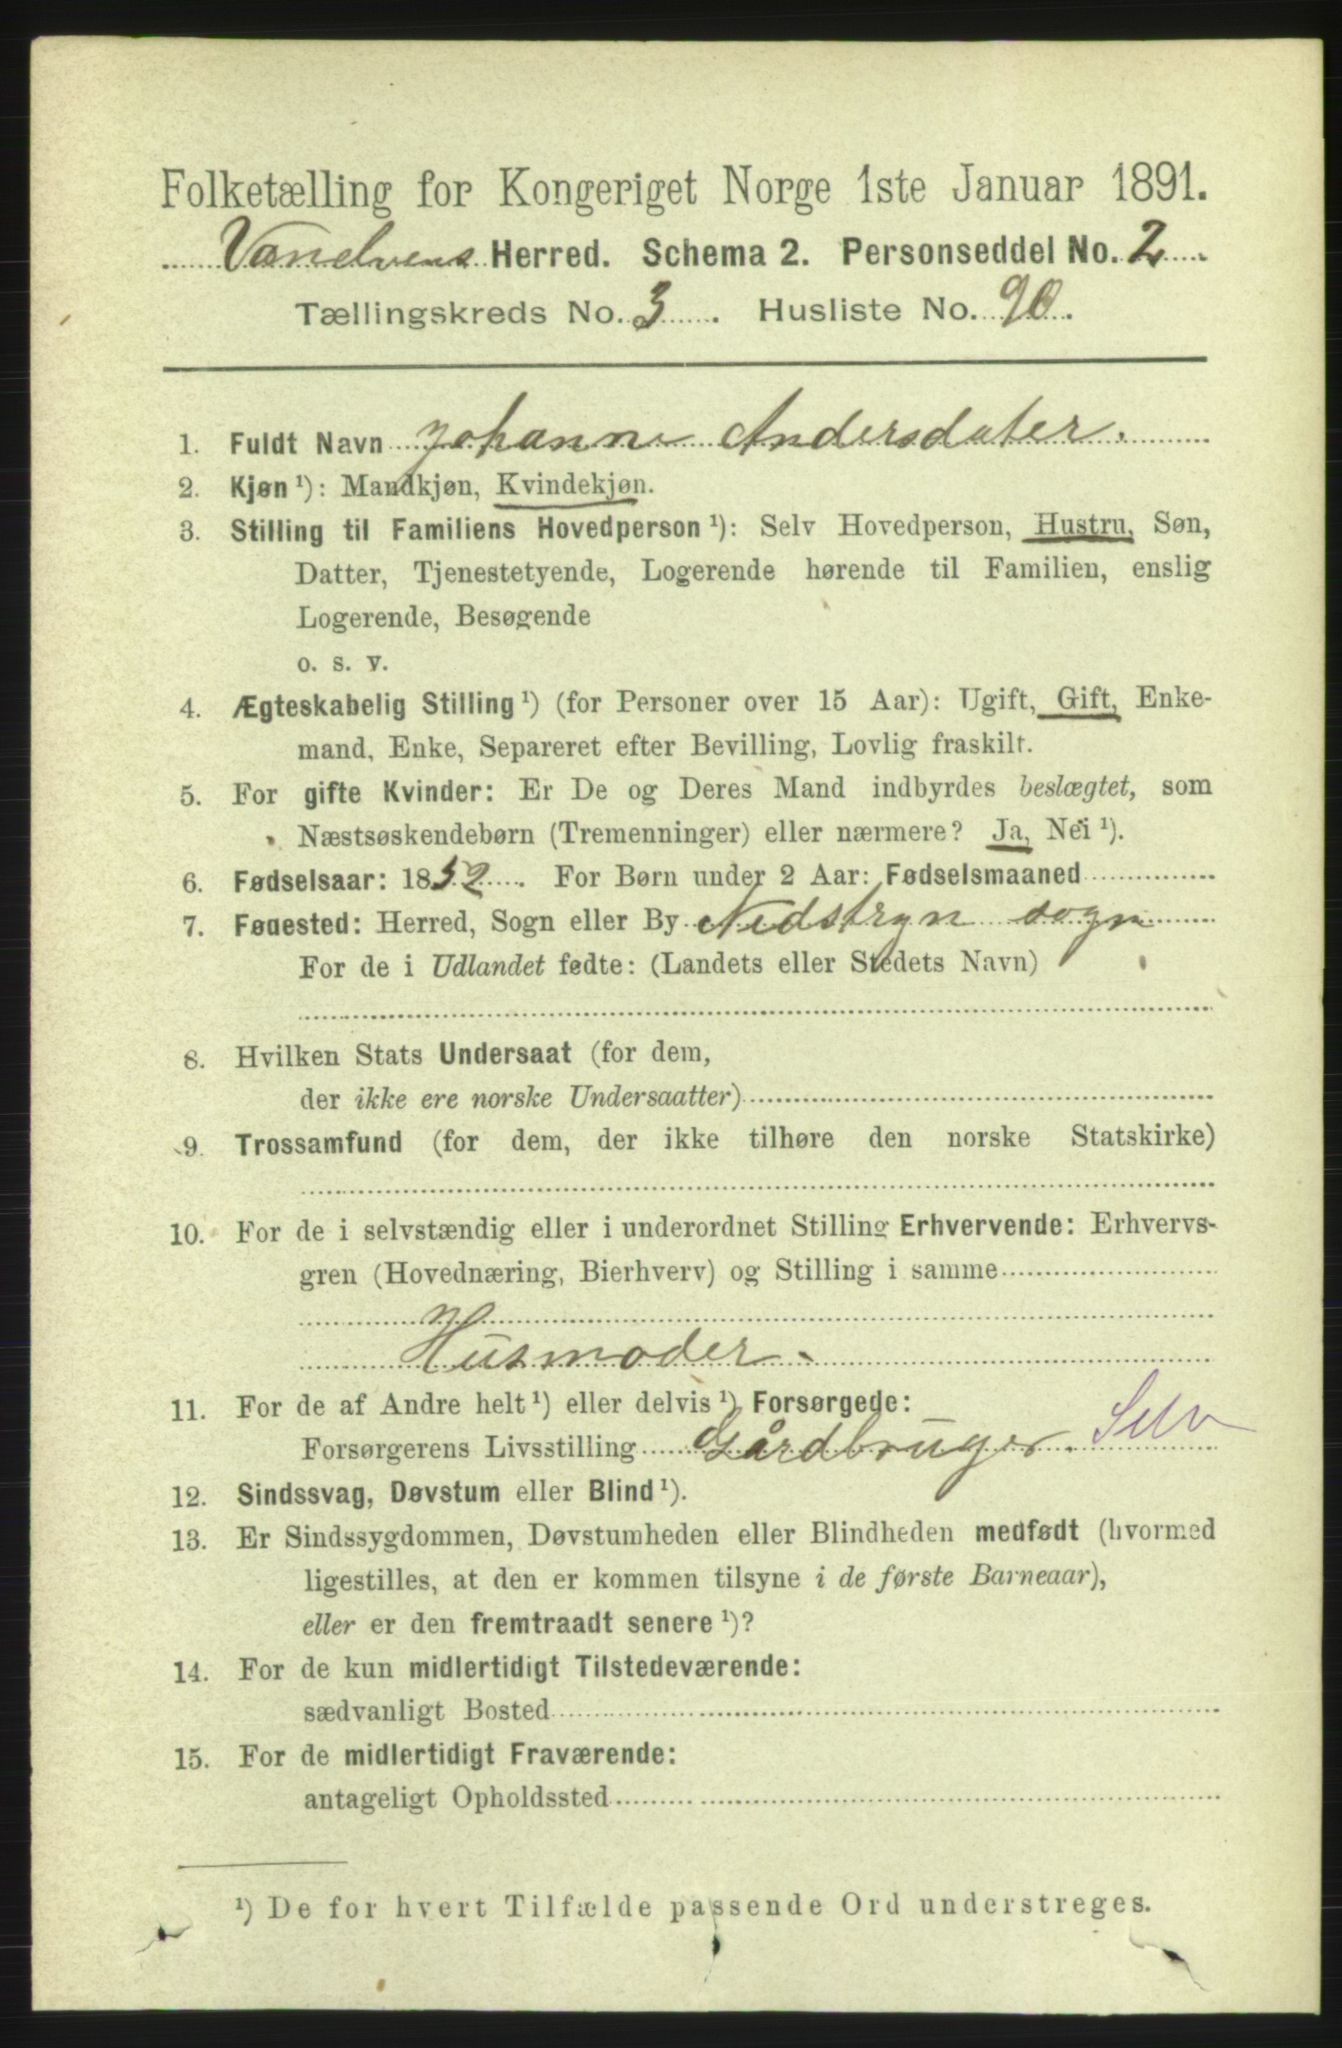 Folketælling for Kongeriget Norge 1ste Januar 1891.
Vanelvens Herred. Schema 2. Personseddel No. 2
Tællingskreds No. 3. Husliste No. 90.
1. Fuldt Navn Johanne Andersdater.
2. Kjøn ¹): Mandkjøn, Kvindekjøn.
3. Stilling til Familiens Hovedperson ¹): Selv Hovedperson, Hustru, Søn,
Datter, Tjenestetyende, Logerende hørende til Familien, enslig
Logerende, Besøgende
o. s. v.
4. Ægteskabelig Stilling ¹) (for Personer over 15 Aar): Ugift, Gift, Enke-
mand, Enke, Separeret efter Bevilling, Lovlig fraskilt.
5. For gifte Kvinder: Er De og Deres Mand indbyrdes beslægtet, som
Næstsøskendebørn (Tremenninger) eller nærmere? Ja, Nei ¹).
6. Fødselsaar: 1852. For Børn under 2 Aar: Fødselsmaaned
7. Fødested: Herred, Sogn eller By Nedstryn sogn
For de i Udlandet fødte: (Landets eller Stedets Navn)
8. Hvilken Stats Undersaat (for dem,
der ikke ere norske Undersaatter)
9. Trossamfund (for dem, der ikke tilhøre den norske Statskirke)
10. For de i selvstændig eller i underordnet Stilling Erhvervende: Erhvervs-
gren (Hovednæring, Bierhverv) og Stilling i samme
Husmoder.
11. For de af Andre helt ¹) eller delvis ¹) Forsørgede:
Forsørgerens Livsstilling Gårdbruger. Selv
12. Sindssvag, Døvstum eller Blind ¹).
13. Er Sindssygdommen, Døvstumheden eller Blindheden medfødt (hvormed
ligestilles, at den er kommen tilsyne i de første Barneaar),
eller er den fremtraadt senere ¹)?
14. For de kun midlertidigt Tilstedeværende:
sædvanligt Bosted
15. For de midlertidigt Fraværende:
antageligt Opholdssted
¹) De for hvert Tilfælde passende Ord understreges.